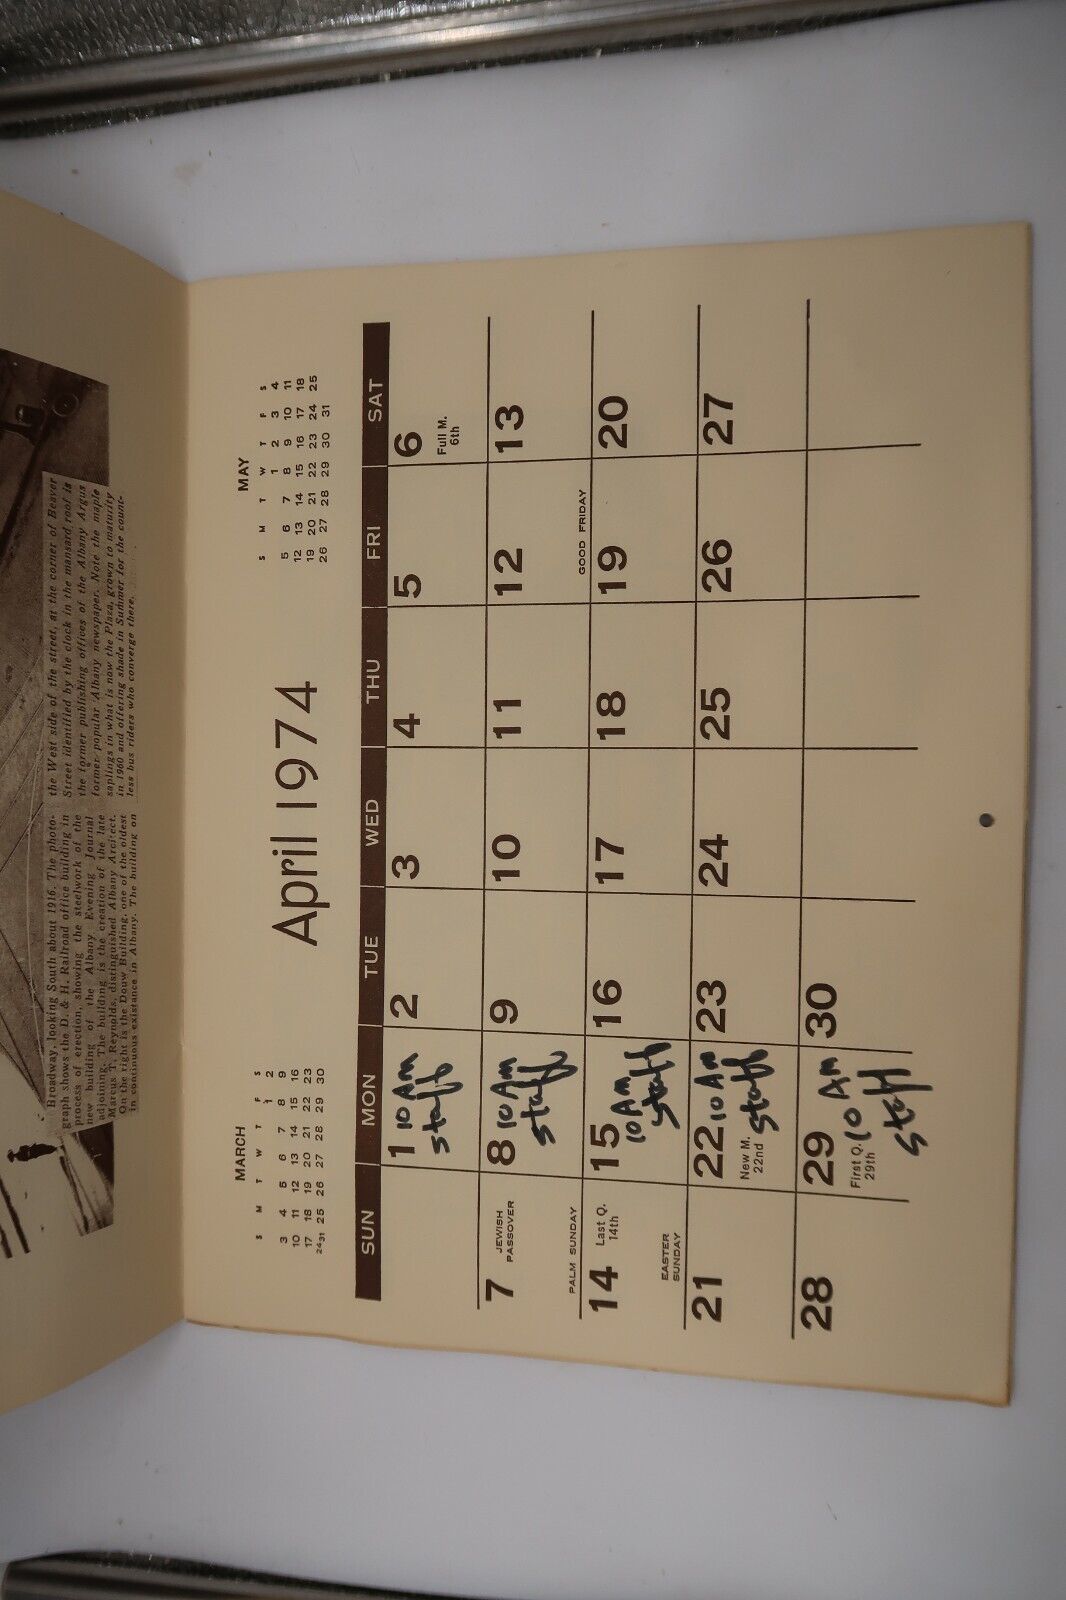 Broadway, looking South about 1916. The photo-
graph shows the D. & H. Railroad office building in
process of erection, showing the steelwork of the
new building of the Albany Evening Journal
adjoining. The building is the creation of the late
Marcus T. Reynolds, distinguished Albany Arcitect.
On the right is the Douw Building, one of the oldest
in continuous existance in Albany. The building on
the West side of the street, at the corner of Beaver
Street identified by the clock in the mansard roof is
the former publishing offices of the Albany Argus
former popular Albany newspaper. Note the maple
saplings in what is now the Plaza, grown to maturity
in 1960 and offering shade in Summer for the count-
less bus riders who converge there.
MARCH
S M T W T F S
1 2
3 4 5 6 7 8 9
10 11 12 13 14 15 16
17 18 19 20 21 22 23
24 31 25 26 27 28 29 30
April 1974
MAY
S M T W T F S
1 2 3 4
5 6 7 8 9 10 11
12 13 14 15 16 17 18
19 20 21 22 23 24 25
26 27 28 29 30 31
SUN MON TUE WED THU FRI SAT
1 10 Am
staff
2
3
4
5
6
Full M.
6th
7
JEWISH
PASSOVER
PALM SUNDAY
8 10 Am
staff
9
10
11
12
GOOD FRIDAY
13
14
Last Q.
14th
EASTER
SUNDAY
15
10 Am
staff
16
17
18
19
20
21
22 10 Am
New M.
22nd
staff
23
24
25
26
27
28
29
First Q.
29th
10 Am
staff
30